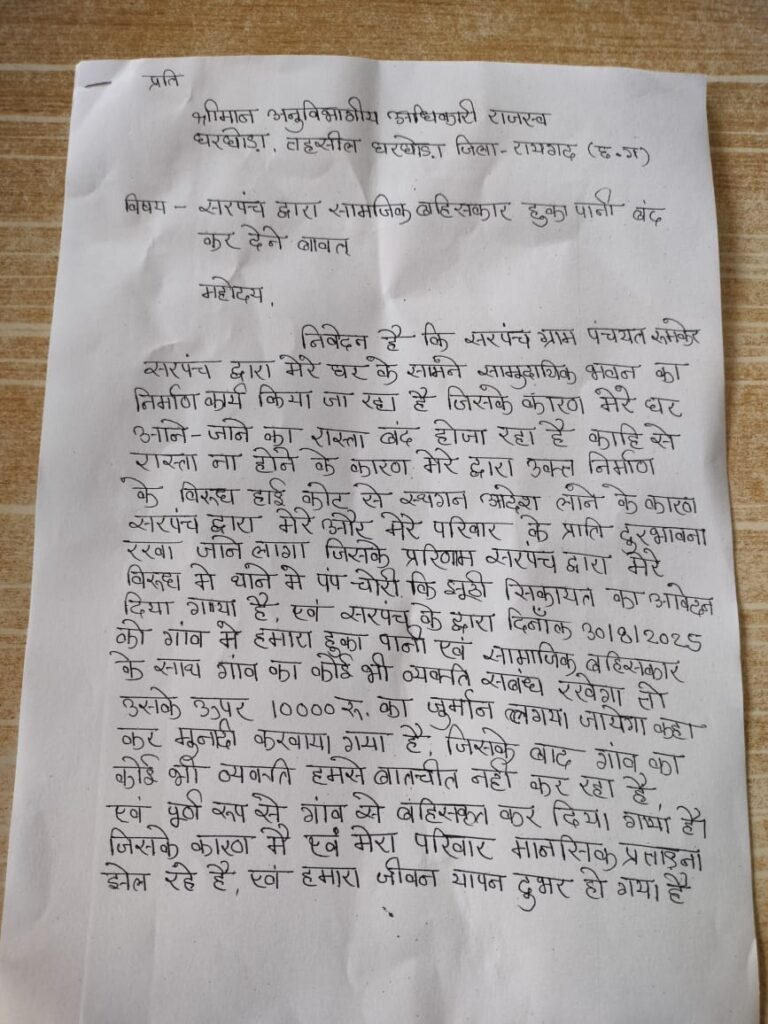 प्रति
श्रीमान अनुविभागीय अधिकारी राजस्व
घरघोड़ा, तहसील घरघोड़ा जिला - रायगढ़ (छ.ग)
विषय - सरपंच द्वारा सामजिक बहिसकार हुका पानी बंद
कर देने बावत्
महोदय,
निवेदन है कि सरपंच ग्राम पंचयत रूमकेर
सरपंच द्वारा मेरे घर के सामने सामुदायिक भवन का
निर्माण कार्य किया जा रहा है जिसके कारण मेरे घर
आने-जाने का रास्ता बंद होजा रहा है काहि से
रास्ता ना होने के कारण मेरे द्वारा उक्त निर्माण
के विरूध हाई कोर्ट से स्थगन आदेश लाने के कारण
सरपंच द्वारा मेरे और मेरे परिवार के प्राति दुरभावना
रखा जाने लागा जिसके प्ररिणाम सरपंच द्वारा मेरे
विरूध मे थाने मे पंप चोरी कि झूठी सिकायत का आवेदन
दिया गया है, एवं सरपंच के द्वारा दिनाँक 30/8/2025
को गांव मे हमारा हुका पानी एवं सामाजिक बहिसकार
के साथ गांव का कोई भी व्यक्ति सबंध रखेगा तो
उसके ऊपर 10000 रू. का जुर्मान लगया जायेगा कहा
कर मुनादी करवाया गया है, जिसके बाद गांव का
कोई भी व्यक्ती हमसे बातचीत नही कर रहा है
एवं पूर्ण रूप से गांव से बहिसकृत कर दिया गया है।
जिसके कारण मै एवं मेरा परिवार मानसिक प्रताड़ना
झेल रहे है, एवं हमारा जीवन यापन दुभर हो गया है